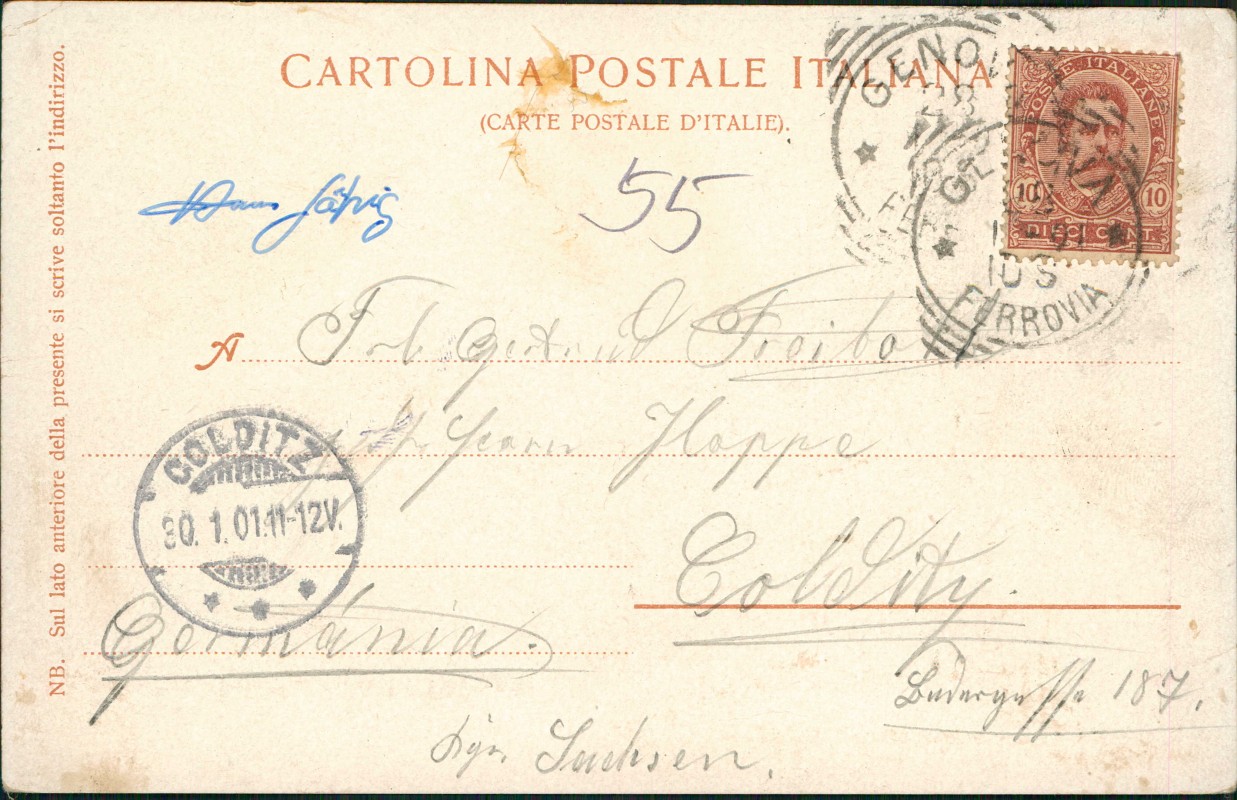 CARTOLINA POSTALE ITALIANA
(CARTE POSTALE D'ITALIE).
GENOVA
28
FERROVIA
GENOVA
1-01
10 S
FERROVIA
POSTE ITALIANE
10 10
DIECI CENT.
55
Hans
A Frl. Gertrud
Hoppe
COLDITZ
30. 1. 01. 11-12V.
Colditz.
Germánia.
Badergasse 187.
Kgr. Sachsen.
NB. Sul lato anteriore della presente si scrive soltanto l'indirizzo.